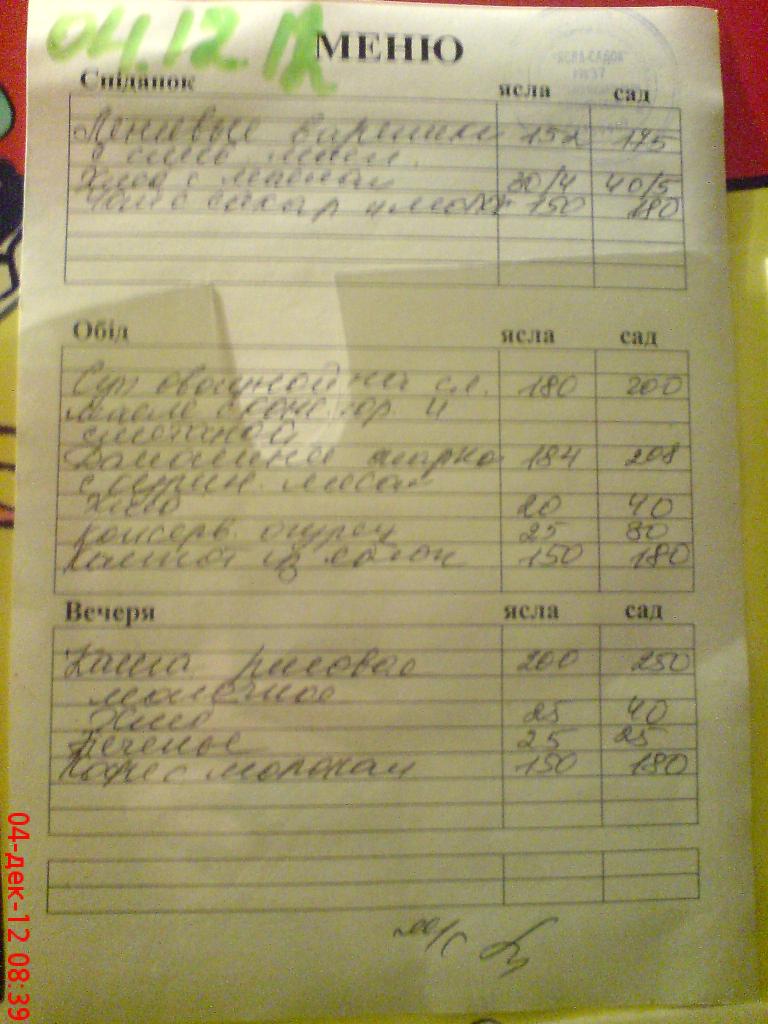 04.12.12
МЕНЮ
Сніданок ясла сад
Ленивые вареники 152 175
с слив. масл.
Хлеб с маслом 30/4 40/5
Чай с сахар и молок 150 180
Обід ясла сад
Суп овощной на сл. 180 200
масле с конс. гор. и
сметаной
Домашнее жарко 184 208
с курин. мясом
Хлеб 20 40
консерв. огурец 25 30
Компот из 150 180
Вечеря ясла сад
Каша рисовая 200 250
молочная
Хлеб 25 40
Печенье 25 25
Кофе с молоком 150 180
м/с
04-дек-12 08:39